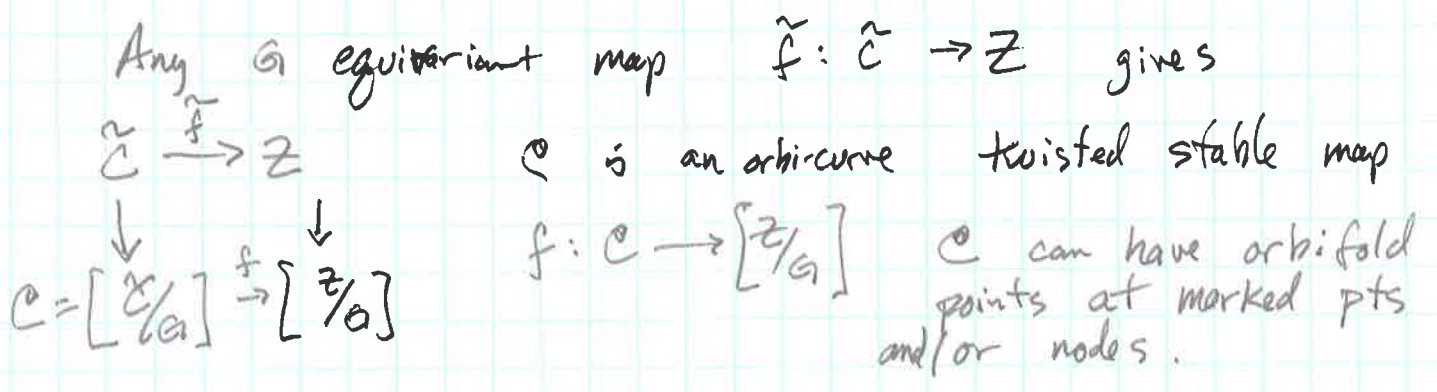 Any G equivariant map f̃ : C̃ → Z gives
C̃ —f̃→ Z
C is an orbi-curve twisted stable map
↓ ↓
f : C → [Z/G] C can have orbifold
C = [C̃/G] —f→ [Z/G]
points at marked pts
and/or nodes.